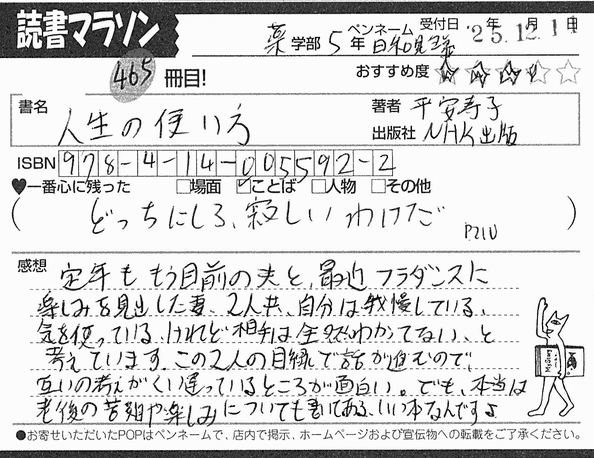 読書マラソン
薬学部5年 ペンネーム 日和見 受付日 '25.12.1
465冊目! おすすめ度
書名 人生の使い方
著者 平安寿子
出版社 NHK出版
ISBN 978-4-14-005592-2
♥一番心に残った □場面 ☑ことば □人物 □その他
(どっちにしろ、寂しいわけだ P210)
感想
定年ももう目前の夫と、最近フラダンスに
楽しみを見出した妻、2人共、自分は我慢している、
気を使っている、けれど相手は全然わかってない、と
考えています。この2人の目線で話が進むので、
互いの考えがくい違っているところが面白い。でも、本当は
老後の苦労や楽しみについても書いてある、いい本なんですよ
●お寄せいただいたPOPはペンネームで、店内で掲示、ホームページおよび宣伝物への転載をご了承ください。